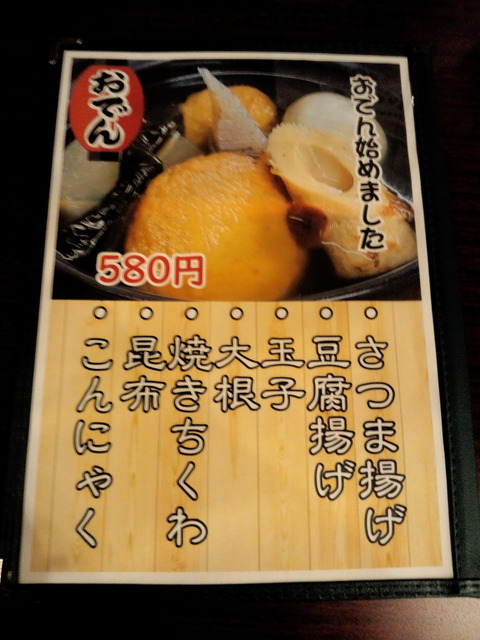 おでん
おでん始めました
580円
さつま揚げ
豆腐揚げ
玉子
大根
焼きちくわ
昆布
こんにゃく